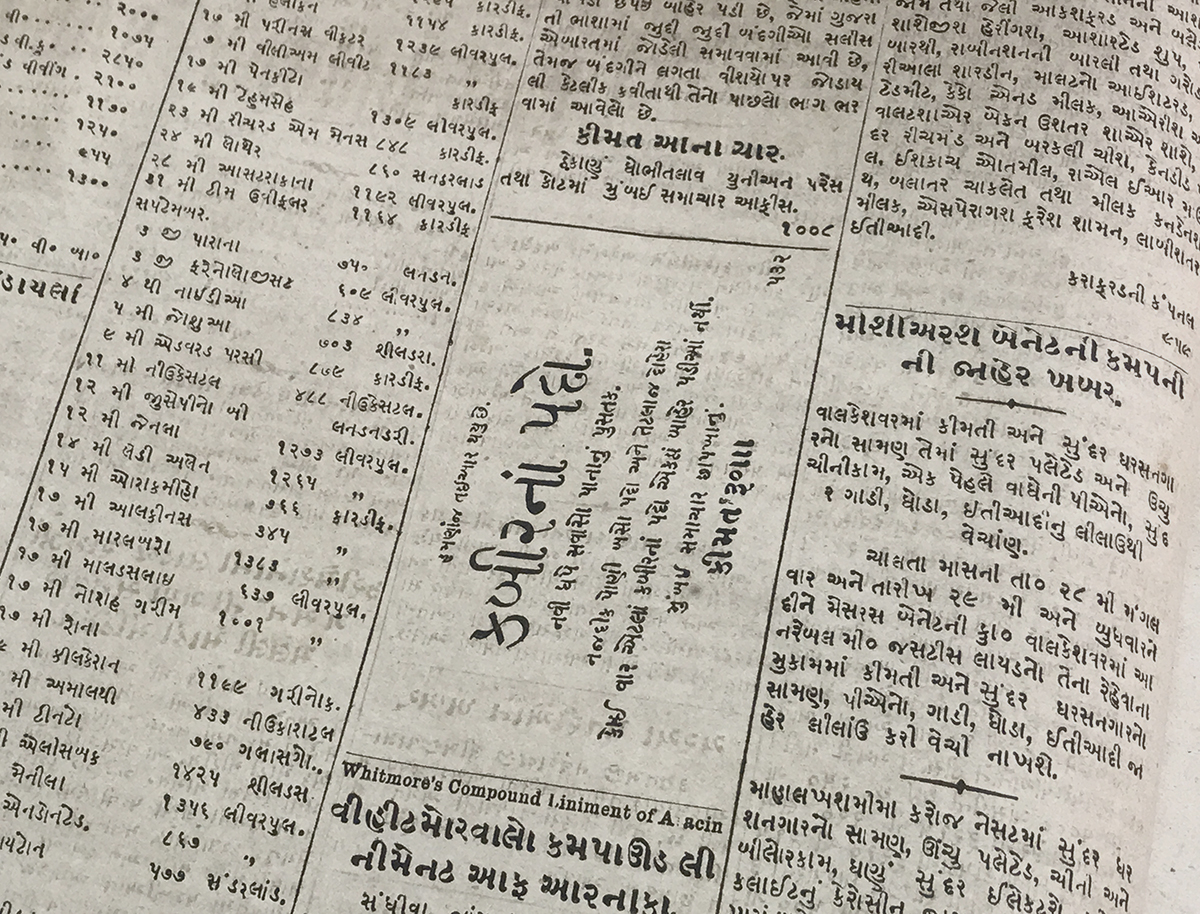 ૨૦૦૦
૧૦૭૫
૨૮૫૦
૨૧૦૦
૧૧૭૦
૧૨૫૦
૯૫૫
૧૩૦૦
૧૭ મી પરીનસ વીકટર ૧૧૫૪ કારડીફ.
૭ મી વીલીઅમ લીવીટ ૧૨૩૯ લીવરપુલ.
૧૭ મી પેનકીટા ૧૧૮૩ ,,
૧૯ મી ટેહમસેહ કારડીફ
૨૩ મી રીચરડ એમ મેનસ ૧૩૦૯ લીવરપુલ.
૨૪ મી લોથેર ૮૪૮ કારડીફ.
૨૮ મી આસટરાકાના ૮૬૦ સનડરલાડ
૩૧ મી ટીમ ઉવીફલર ૧૧૯૨ લીવરપુલ.
૧૧૬૪ કારડીફ
સપટેમબર.
૩ જી પારાના ૭૫૦ લનડન.
૩ જી ફરેનોલોજીસટ ૬૦૯ લીવરપુલ.
૪ થી નાઈડીઆ ૮૩૪ ,,
૫ મી જોશુઆ ૭૦૩ શીલડરા.
૯ મી એડવરડ પરસી ૮૭૯ કારડીફ.
૧૧ મી નીઉકેસટલ ૪૮૮ નીઉકેસટલ.
૧૨ મી જુસેપીનો બી લનડનડરી.
૧૨ મી જેનલા ૧૨૭૩ લીવરપુલ.
૧૪ મી લેડી અલેન ૧૨૬૫ ,,
૧૫ મી ઓરાકમીહો ૭૬૬ કારડીફ.
૧૭ મી આલકીનસ ૩૪૫ ,,
૧૭ મી મારલબરા ૧૩૮૩ ,,
૧૭ મી માલડસલાઇ ૬૩૭ લીવરપુલ.
૧૭ મી નોરાહ ગરીમ ૧૦૦૧ ,,
૧૭ મી રોના
મી કીલકેરાન ૧૧૯૯ ગરીનોક.
મી અમાલથી ૪૩૩ નીઉકારાટલ
મી ટીનટો ૭૯૦ ગલાસગો.
એલીસબક ૧૪૨૫ શીલડસ
મેનીલા ૧૩૫૬ લીવરપુલ.
એનડોનટેડ. ૮૬૭ ,,
૫૭૭ સંડરલાંડ.
છપાઇ બાહેર પડી છે, જેમાં ગુજરા
તી ભાશામાં જુદી જુદી બંદગીઓ સલીસ
એબારતમાં જોડેલી સમાવવામાં આવી છે,
તેમજ બંદગીને લગતા વીશયો પર જોડાય
લી કેટલીક કવીતાથી તેનો પાછલો ભાગ ભર
વામાં આવેલો છે.
કીમત આના ચાર.
ઠેકાણું ધોબીતલાવ યુનીઅન પરેસ
તથા કોટમાં મુંબઈ સમાચાર આફીસ.
૧૦૦૮
હમણાંજ તઇઆર થયું છે.
કબીરનાં પદો.
નવી ઢપે સવાસો પાનાનું પુસ્તક.
નજદીક પોણી બસો પદો અને તેટલાજ દોહેરા
કોઈ વાર એટલાં કબીરનાં પદો એકઠાં બાહેર પડીઆં નથી.
મુંબઇ સમાચાર છાપખાનું.
કીમત રૂ૦ાાા
૫૩૨
Whitmore's Compound Liniment of A acin
વીહીટમોરવાલો કમપાઊડ લી
નીમેનટ આફ આરનાકા.
જામ તથા જેલી આકશફરડ અને
શાશીજીશ હેરીંગશ, આશારટેડ શુપ,
બારથી, રાબીનશનની બારલી તથા ગરોટ
રીઆલા શારડીન, માલટનો આઈશટરડ,
ટેડમીટ, કોકો એનડ મીલક, આએરીશ
વાલટશાએર બેકન ઉશતર શાએર શોશ,
દર રીચમંડ અને બરકલી ચીશ, કેનડીડ
લ, ઈશકાચ ઓતમીલ, રાએલ ઈઆર
થ, બલાતર ચાકલેત તથા મીલક કનડેનશ
મીલક, એસપેરાગશ ફરેશ શામન, લાબીશતર
ઈતીઆદી.
કરાફરડની કંપનલ
૯૫૯
મોશીઅરશ બેનેટની કમપની
ની જાહેર ખબર.
વાલકેશવરમાં કીમતી અને સુંદર ઘરસનગા
રનો સામણ તેમાં સુંદર પલેટેડ અને ઉચુ
ચીનીકામ, એક પેહલે વાઘેની પીએનો, સુંદ
૨ ગાડી, ઘોડા, ઇતીઆદીનું લીલાઉથી
વેચાંણ.
ચાલતા માસની તા૦ ૨૮ મી મંગલ
વાર અને તારીખ ૨૯ મી અને બુધવારને
દીને મેસરસ બેનેટની કુા૦ વાલકેશવરમાં આ
નરેબલ મી૦ જસટીસ લાયડનો તેના રેહેવાના
મુકામમાં કીમતી અને સુંદર ઘરસનગારનો
સામણ, પીએનો, ગાડી, ઘોડા, ઈતીઆદી જા
હેર લીલાંઉ કરી વેચી નાખશે.
માહાલખશમીમાં કરોજ નેસટમાં સુંદર ઘર
શનગારનો સામણ, ઊંચુ પલેટેડ, ચીની અને
બીલોરકામ, ઘણું સુંદર ઈલેકટરો
કલાઈટનું કેરોસીન